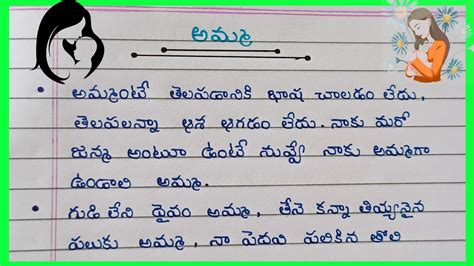 అమ్మ
అమ్మంటే తెలపడానికి భాష చాలడం లేదు,
తెలపలన్నా ఆశ ఆగడం లేదు. నాకు మరో
జన్మ అంటూ ఉంటే నువ్వే నాకు అమ్మగా
ఉండాలి అమ్మ.
గుడి లేని దైవం అమ్మ, తేనె కన్నా తియ్యనైన
పలుకు అమ్మ, నా పెదవి పలికిన తొలి